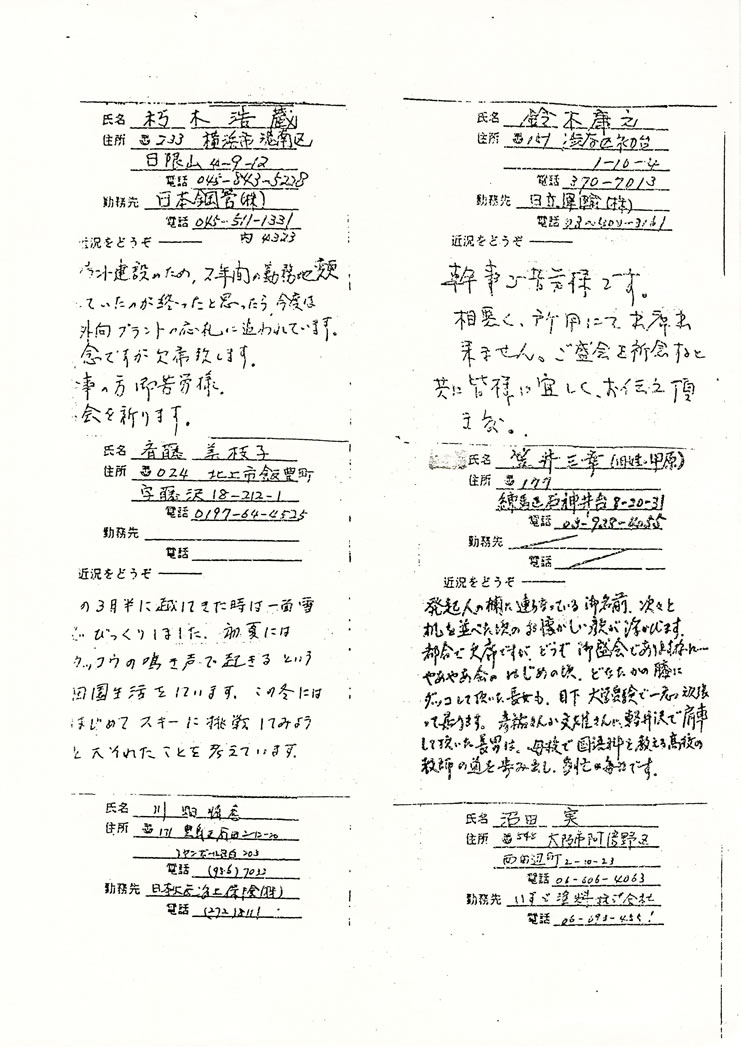 氏名 朽木浩蔵
住所 〒233 横浜市港南区
日限山 4-9-12
電話 045-843-5228
勤務先 日本鋼管(株)
電話 045-511-1331
内 4323
近況をどうぞ
ラント建設のため、2年間の勤務地
ていたのが終ったと思ったら、今度は
外向プラントの応札に追われています。
念ですが欠席致します。
事の方御苦労様。
会を祈ります。
氏名 斉藤 美枝子
住所 〒024 北上市飯豊町
字藤沢 18-212-1
電話 0197-64-4525
勤務先
電話
近況をどうぞ
の3月半に越してきた時は一面雪
びっくりしました。初夏には
カッコウの鳴き声で起きるという
田園生活をしています。この冬には
はじめてスキーに挑戦してみよう
と大それたことを考えています。
氏名 川
住所 〒171 豊島区 2-12-20
203
電話 (986) 7032
勤務先 日本火災海上保険(株)
電話 (272) 8111
氏名 鈴木康之
住所 〒151 渋谷区初台
1-10-4
電話 370-7013
勤務先 日立運輸(株)
電話
近況をどうぞ
幹事ご苦労様です。
相悪く、所用にて出席出
来ません。ご盛会を祈念すると
共に皆様に宜しく、お伝え頂
氏名 笠井三幸 (旧姓・甲原)
住所 〒177
練馬区石神井台 8-20-31
電話 03-928-4055
勤務先
電話
近況をどうぞ
発起人の欄に連らなっている御名前、次々と
机を並べた頃のお懐かしい顔が浮かびます。
都合で欠席ですが、どうぞ御盛会でありますように…
やあやあ会のはじめの頃、どなたかの膝に
ダッコして頂いた長女も、目下大学受験で一応頑張
って居ります。 軽井沢で肩車
して頂いた長男は、母校で国語科を教える高校の
教師の道を歩み出し、多忙な毎日です。
氏名 沼田 実
住所 〒545 大阪市阿倍野区
西田辺町 2-10-23
電話 06-606-4063
勤務先 いすゞ塗料株式会社
電話